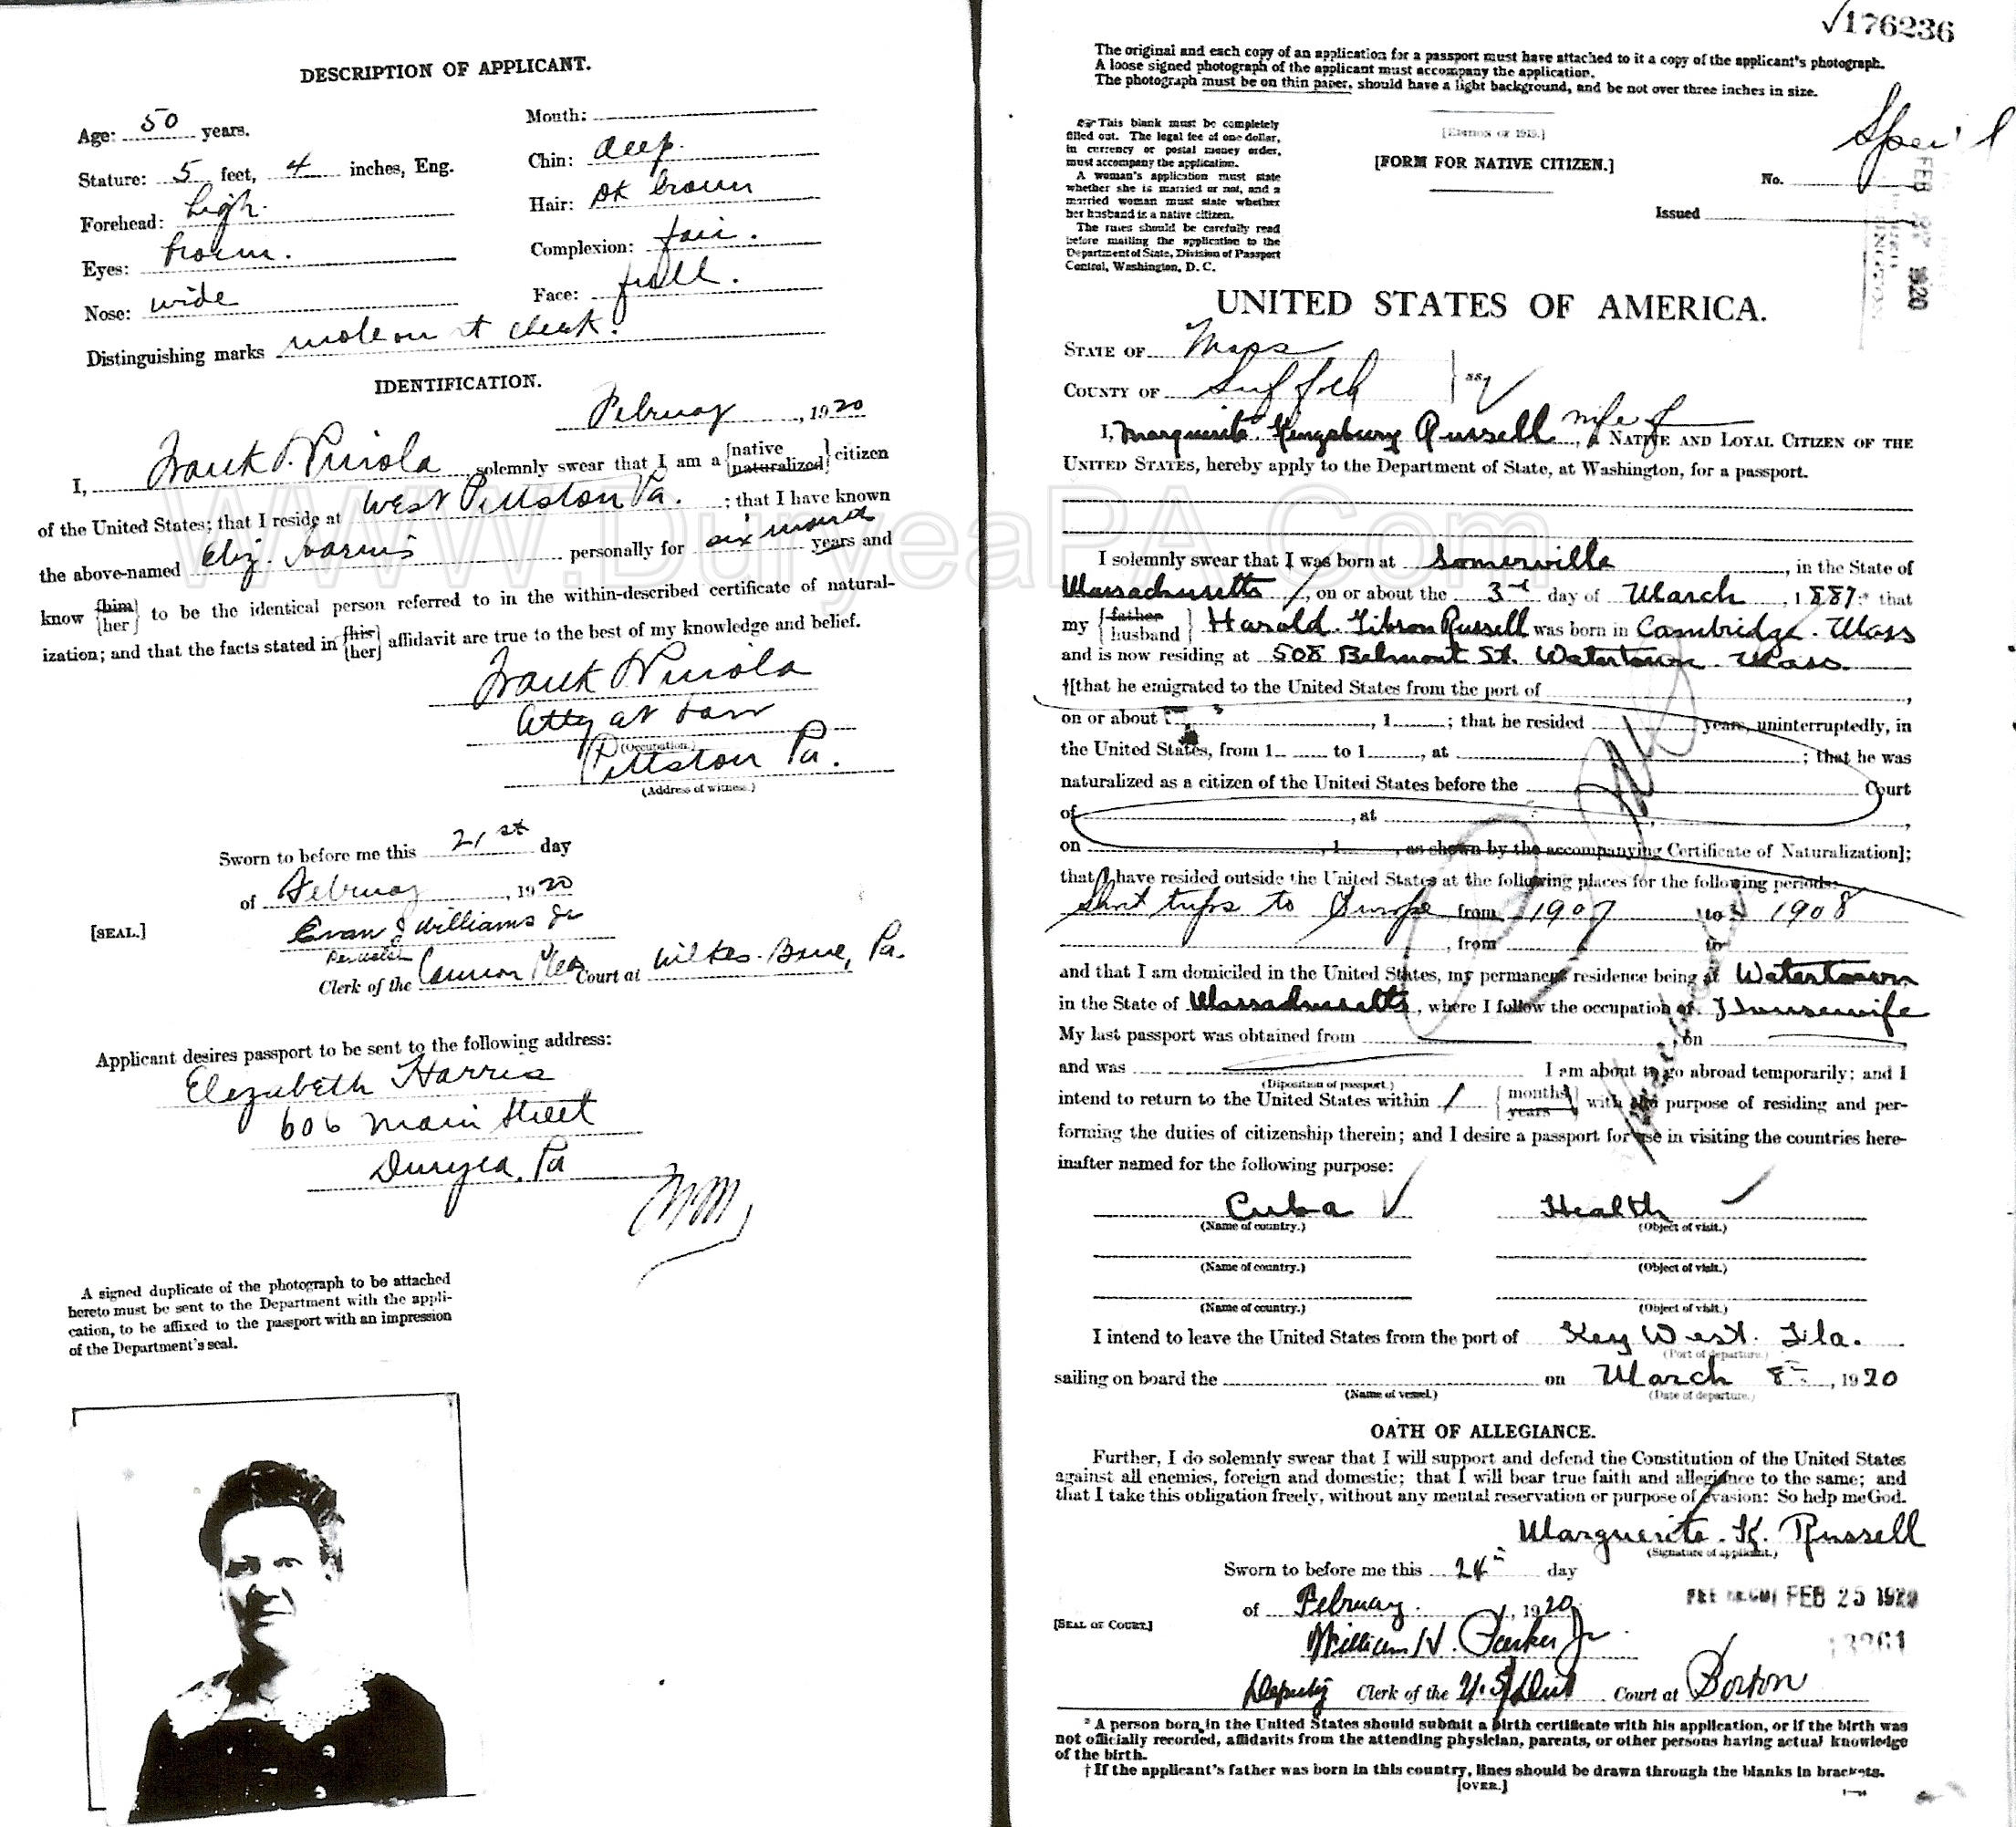 DESCRIPTION OF APPLICANT.
Age: 50 years.
Stature: 5 feet, 4 inches, Eng.
Forehead: high.
Eyes: brown.
Nose: wide
Month:
Chin: deep.
Hair: dk brown
Complexion: fair.
Face: full.
Distinguishing marks mole on rt cheek.
IDENTIFICATION.
February, 1920
I, Frank P. solemnly swear that I am a {native naturalized} citizen
of the United States; that I reside at West Pittston Pa.; that I have known
the above-named Eliz. Harris personally for six years and
know {him her} to be the identical person referred to in the within-described certificate of natural-
ization; and that the facts stated in {his her} affidavit are true to the best of my knowledge and belief.
Frank P
Atty at Law
(Occupation.)
Pittston Pa.
(Address of witness.)
Sworn to before me this 21st day
of February, 1920
[SEAL.]
Evan J Williams Jr
Clerk of the Common Pleas Court at Wilkes-Barre, Pa.
Applicant desires passport to be sent to the following address:
Elizabeth Harris
606 Main Street
Duryea, Pa
A signed duplicate of the photograph to be attached
hereto must be sent to the Department with the appli-
cation, to be affixed to the passport with an impression
of the Department's seal.
WWW.DuryeaPA.Com
√176236
The original and each copy of an application for a passport must have attached to it a copy of the applicant's photograph.
A loose signed photograph of the applicant must accompany the application.
The photograph must be on thin paper, should have a light background, and be not over three inches in size.
This blank must be completely
filled out. The legal fee of one dollar,
in currency or postal money order,
must accompany the application.
A woman's application must state
whether she is married or not, and a
married woman must state whether
her husband is a native citizen.
The rules should be carefully read
before mailing the application to the
Department of State, Division of Passport
Control, Washington, D. C.
[EDITION OF 1919.]
[FORM FOR NATIVE CITIZEN.]
Special
No.
Issued
FEB 1920
UNITED STATES OF AMERICA.
STATE OF Mass
COUNTY OF Suffolk } ss
I, Marguerite Kingsbury Russell wife of, a NATIVE AND LOYAL CITIZEN OF THE
UNITED STATES, hereby apply to the Department of State, at Washington, for a passport.
I solemnly swear that I was born at Somerville, in the State of
Massachusetts, on or about the 3rd day of March, 1887; that
my {father husband} Harold Gibson Russell was born in Cambridge. Mass
and is now residing at 508 Belmont St. Watertown Mass.
†[that he emigrated to the United States from the port of
on or about , 1 ; that he resided years, uninterruptedly, in
the United States, from 1 to 1 , at ; that he was
naturalized as a citizen of the United States before the Court
of , at ,
on , 1 , as shown by the accompanying Certificate of Naturalization];
that I have resided outside the United States at the following places for the following periods:
Short trips to Europe from 1907 to 1908
, from to
and that I am domiciled in the United States, my permanent residence being at Watertown
in the State of Massachusetts, where I follow the occupation of Housewife
My last passport was obtained from on
and was I am about to go abroad temporarily; and I
(Diposition of passport.)
intend to return to the United States within 1 {months years} with the purpose of residing and per-
forming the duties of citizenship therein; and I desire a passport for use in visiting the countries here-
inafter named for the following purpose:
Cuba Health
(Name of country.) (Object of visit.)
(Name of country.) (Object of visit.)
(Name of country.) (Object of visit.)
I intend to leave the United States from the port of Key West. Fla.
(Port of departure.)
sailing on board the on March 8, 1920
(Name of vessel.) (Date of departure.)
OATH OF ALLEGIANCE.
Further, I do solemnly swear that I will support and defend the Constitution of the United States
against all enemies, foreign and domestic; that I will bear true faith and allegiance to the same; and
that I take this obligation freely, without any mental reservation or purpose of evasion: So help me God.
Marguerite K. Russell
(Signature of applicant.)
Sworn to before me this 24th day
of February, 1920
FEB 25 1920
[SEAL OF COURT.]
William H. Parker Jr.
Deputy Clerk of the U.S. Dist Court at Boston
* A person born in the United States should submit a birth certificate with his application, or if the birth was
not officially recorded, affidavits from the attending physician, parents, or other persons having actual knowledge
of the birth.
† If the applicant's father was born in this country, lines should be drawn through the blanks in brackets.
[OVER.]